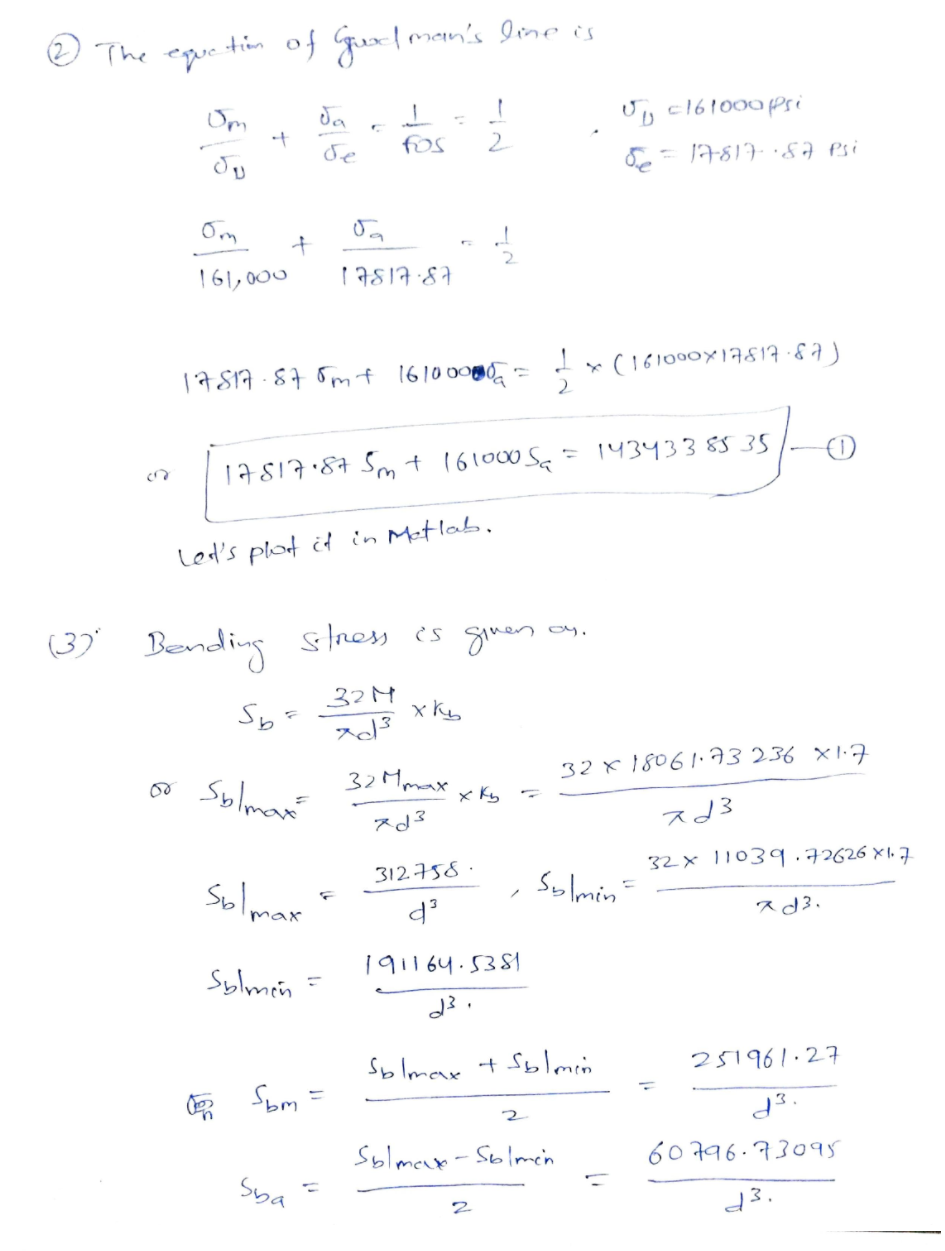 ② The equation of Goodman's line is
σm/σu + σa/σe = 1/fos = 1/2 , συ = 161000 psi
σe = 17817.87 psi
σm/161,000 + σa/17817.87 = 1/2
17817.87 σm + 161000 σa = 1/2 × (161000×17817.87)
or 17817.87 Sm + 161000 Sa = 1434338535 —①
Let's plot it in Matlab.
(3) Bending stress is given as.
Sb = 32M/πd³ × Kb
or Sb|max = 32Mmax/πd³ × Kb = 32 × 18061.73236 × 1.7/πd³
Sb|max = 312758./d³ , Sb|min = 32 × 11039.72626 × 1.7/πd³.
Sb|min = 191164.5381/d³.
Sbm = Sb|max + Sb|min/2 = 251961.27/d³.
Sba = Sb|max - Sb|min/2 = 60796.73095/d³.